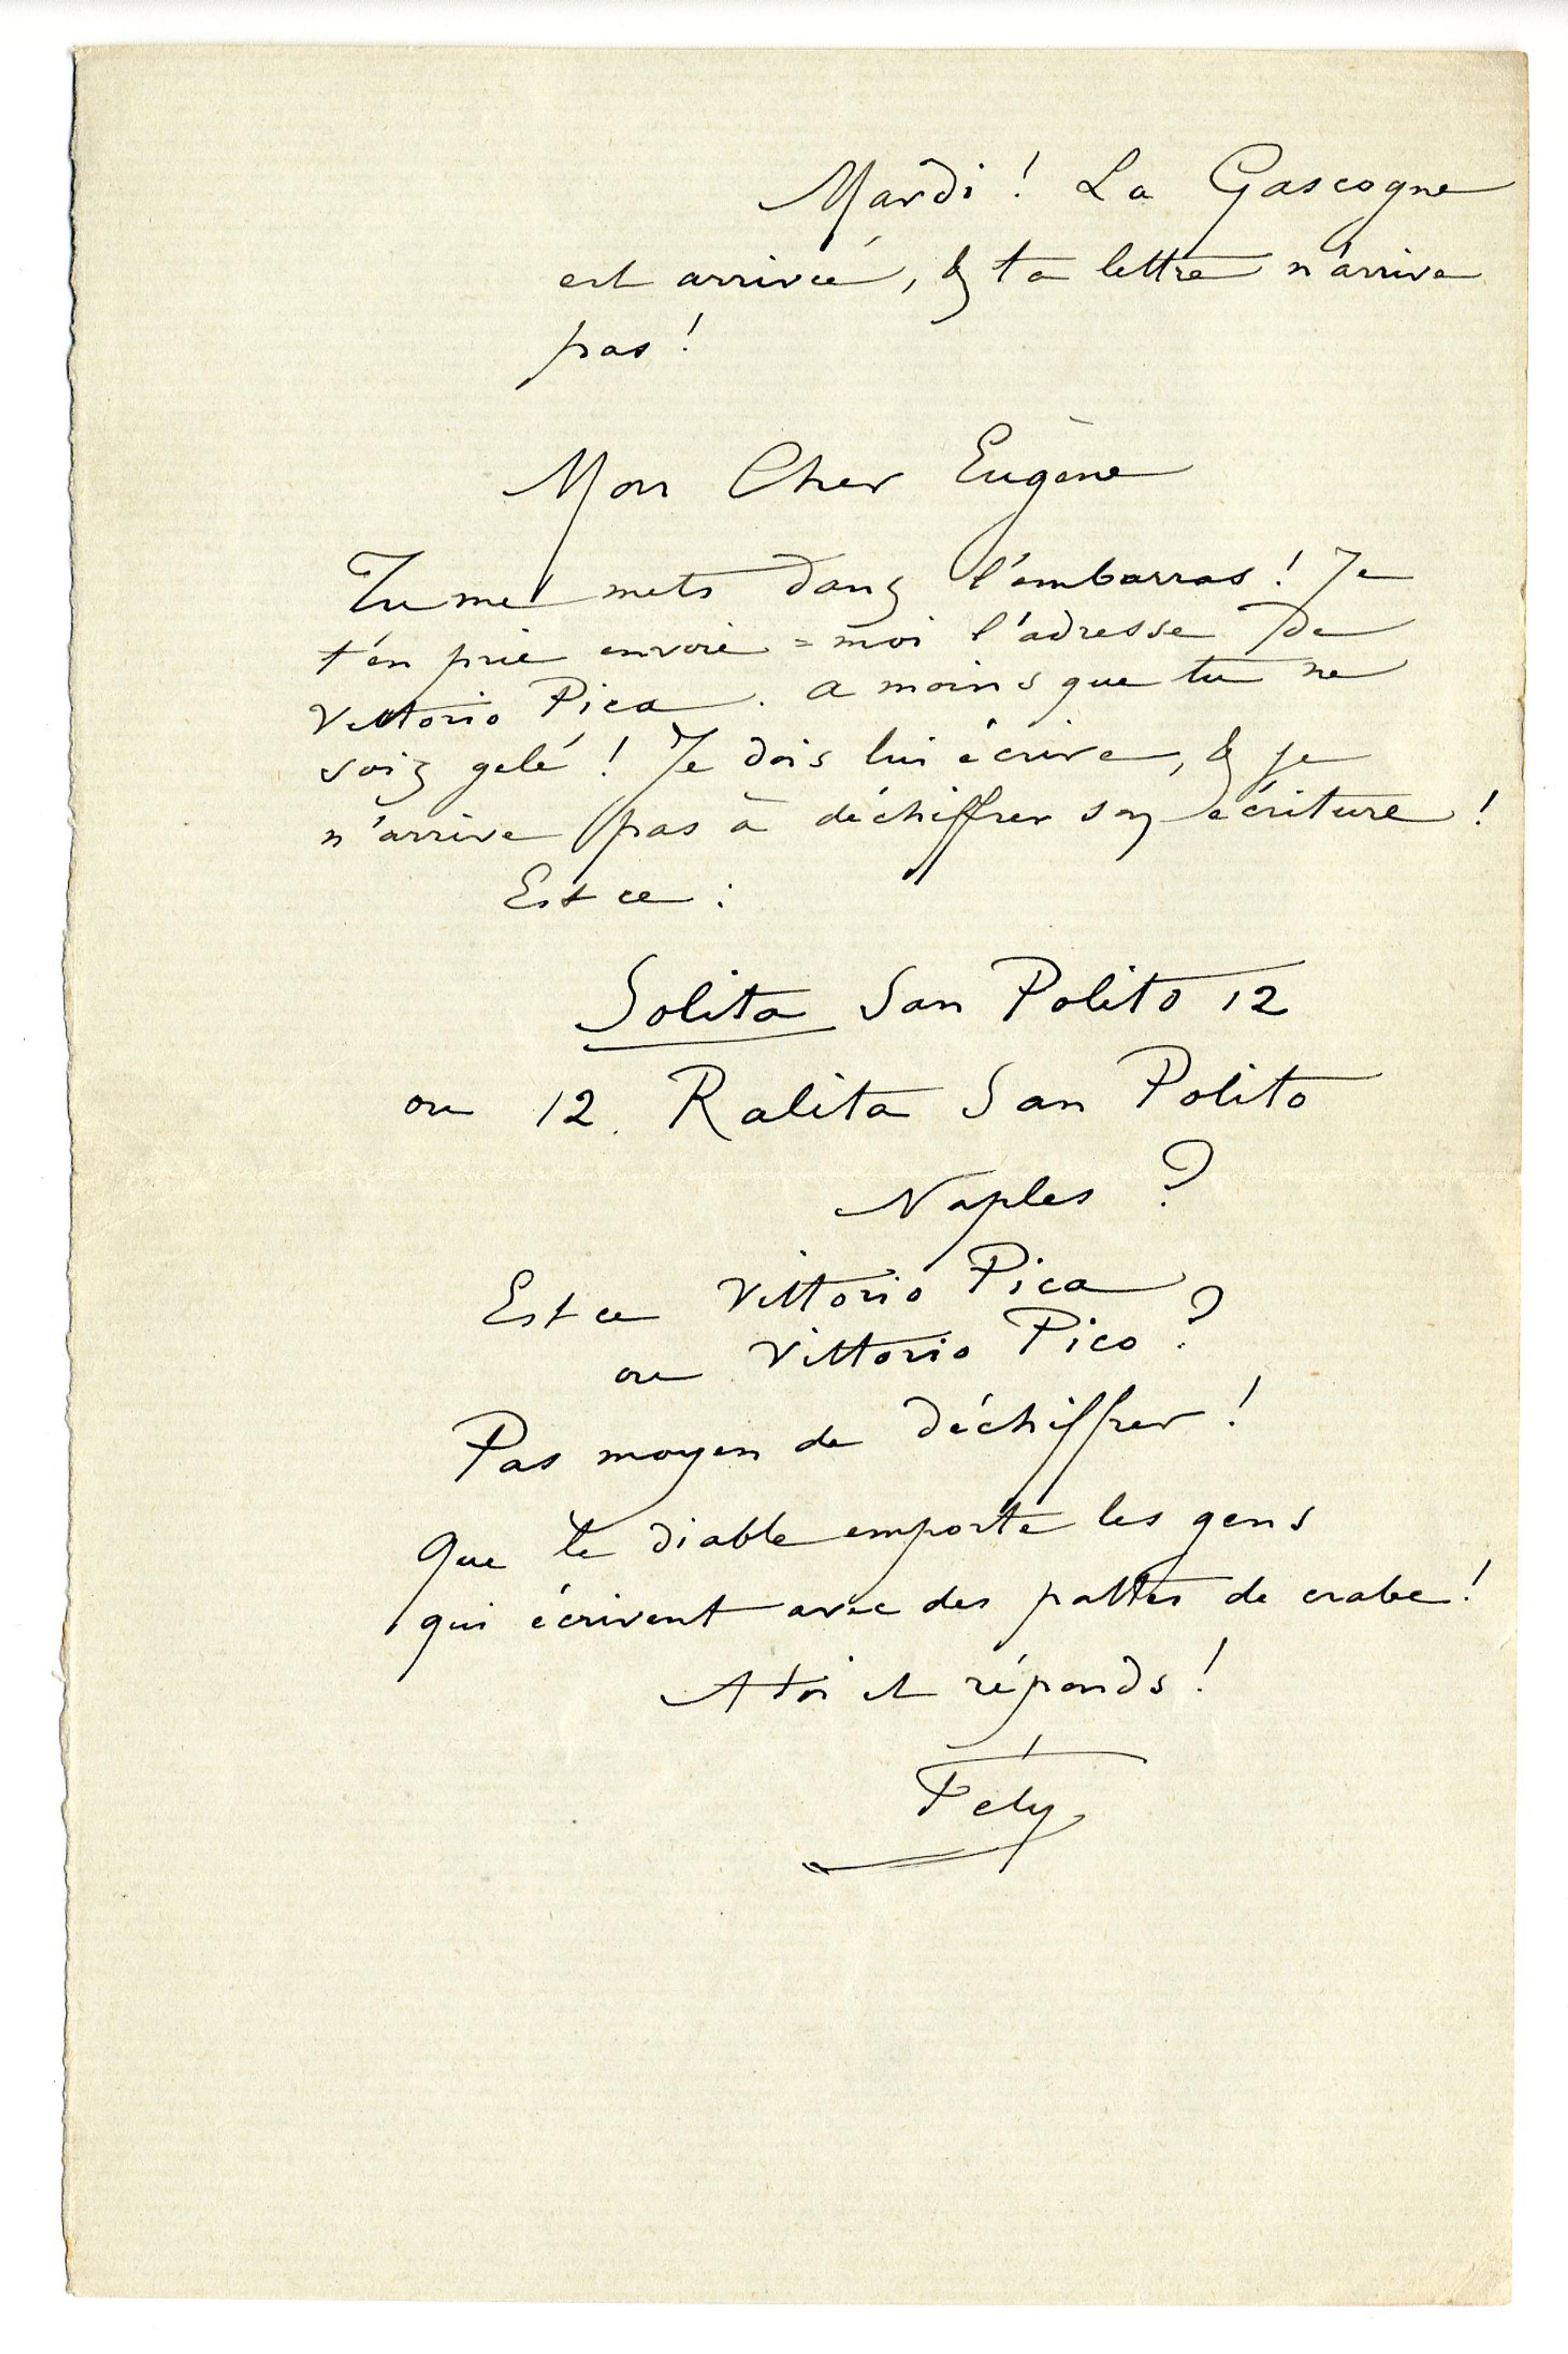 Mardi ! La Gascogne
est arrivée, & ta lettre n'arrive
pas !
Mon Cher Eugène
Tu me mets dans l'embarras ! Je
t'en prie envoie = moi l'adresse de
Vittorio Pica. a moins que tu ne
sois gelé ! Je dois lui écrire, & je
n'arrive pas à déchiffrer son écriture !
Est ce :
Solita San Polito 12
ou 12. Ralita San Polito
Naples ?
Est ce Vittorio Pica
ou Vittorio Pico ?
Pas moyen de déchiffrer !
Que le diable emporte les gens
qui écrivent avec des pattes de crabe !
A toi et réponds !
Fély